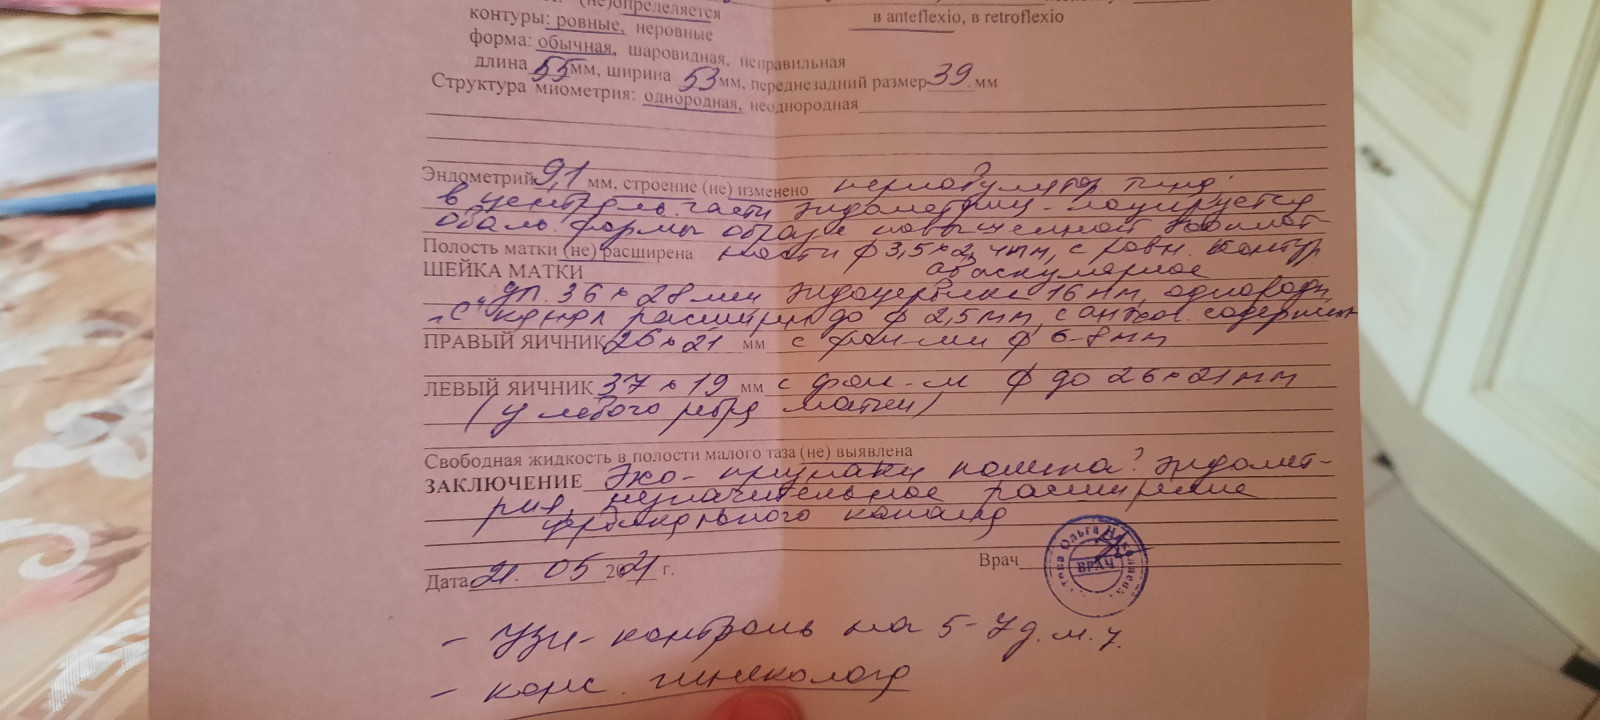 (не)определяется
контуры: ровные, неровные
в anteflexio, в retroflexio
форма: обычная, шаровидная, неправильная
длина 55 мм, ширина 53 мм, переднезадний размер 39 мм
Структура миометрия: однородная, неоднородная
Эндометрий 9,1 мм, строение (не) изменено
в централь. части эндометрия - лоцируется
обаль. формы образ повышенной эхоплот-
Полость матки (не) расширена ности ф 3,5×2,4мм, с ровн. контур
ШЕЙКА МАТКИ аваскулярное
дл. 36 × 28 мм эндоцервикс 16 мм, однороди
"с" канал расширен до ф 2,5мм, с анэхо. содержим
ПРАВЫЙ ЯИЧНИК 26 × 21 мм с фол-ми ф 6-8мм
ЛЕВЫЙ ЯИЧНИК 37 × 19 мм с фол-м ф до 26×21мм
(у левого ребра матки)
Свободная жидкость в полости малого таза (не) выявлена
ЗАКЛЮЧЕНИЕ Эхо-признаки полипа? эндомет-
рия, незначительное расширение
цервикального канала
Дата 21. 05 2021 г.
Врач
Ольга
ВРАЧ
- УЗИ-контроль на 5-7 д.м.ц.
- конс. гинеколога